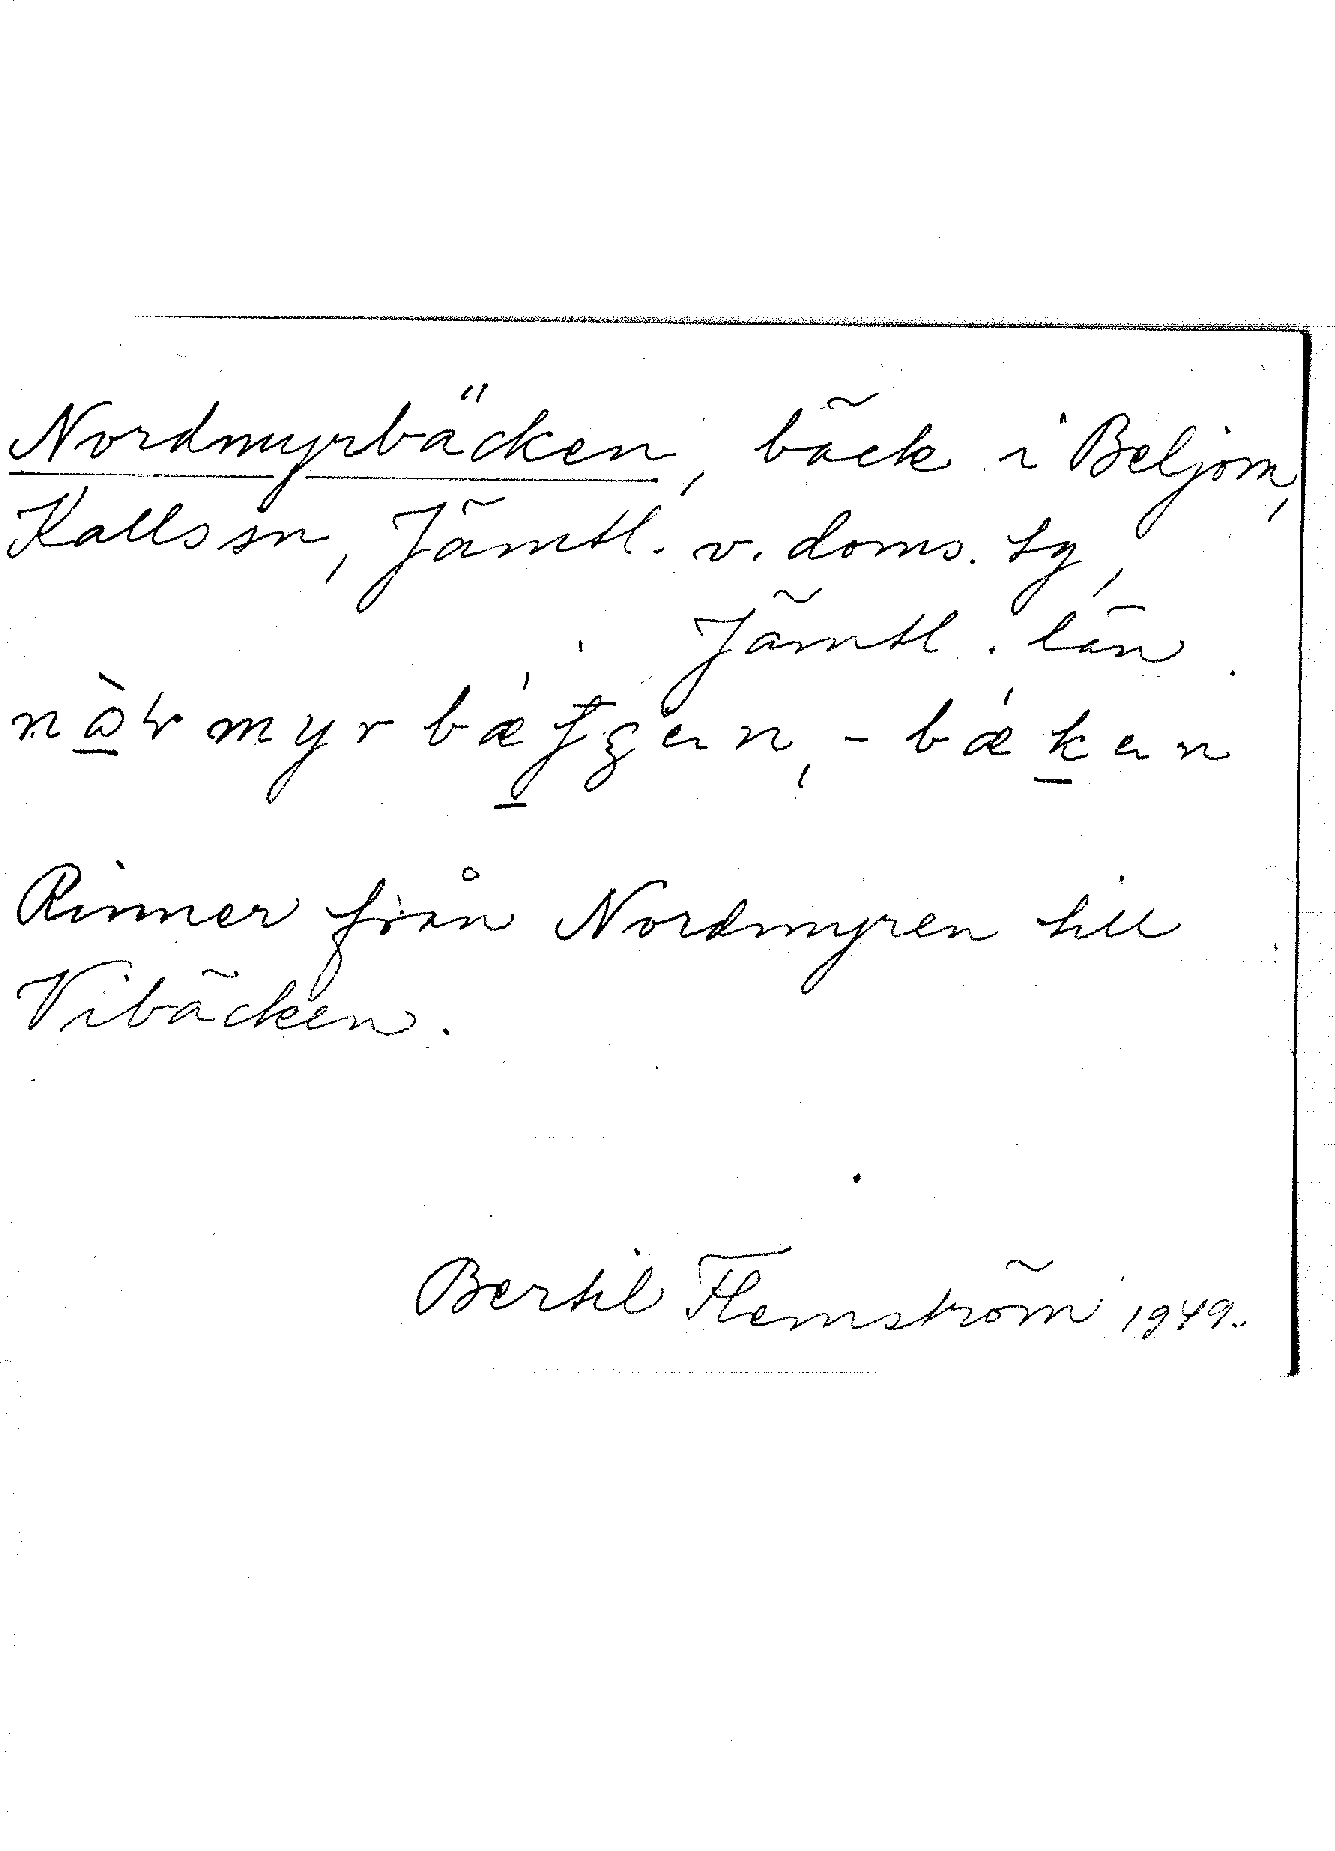 Nordmyrbäcken, bäck i Beljom,
Kalls sn, Jämtl. v. doms. tg,
Jämtl. län
- bækan
Rinner från Nordmyren till
Vibäcken.
Bertil Flemström 1949.